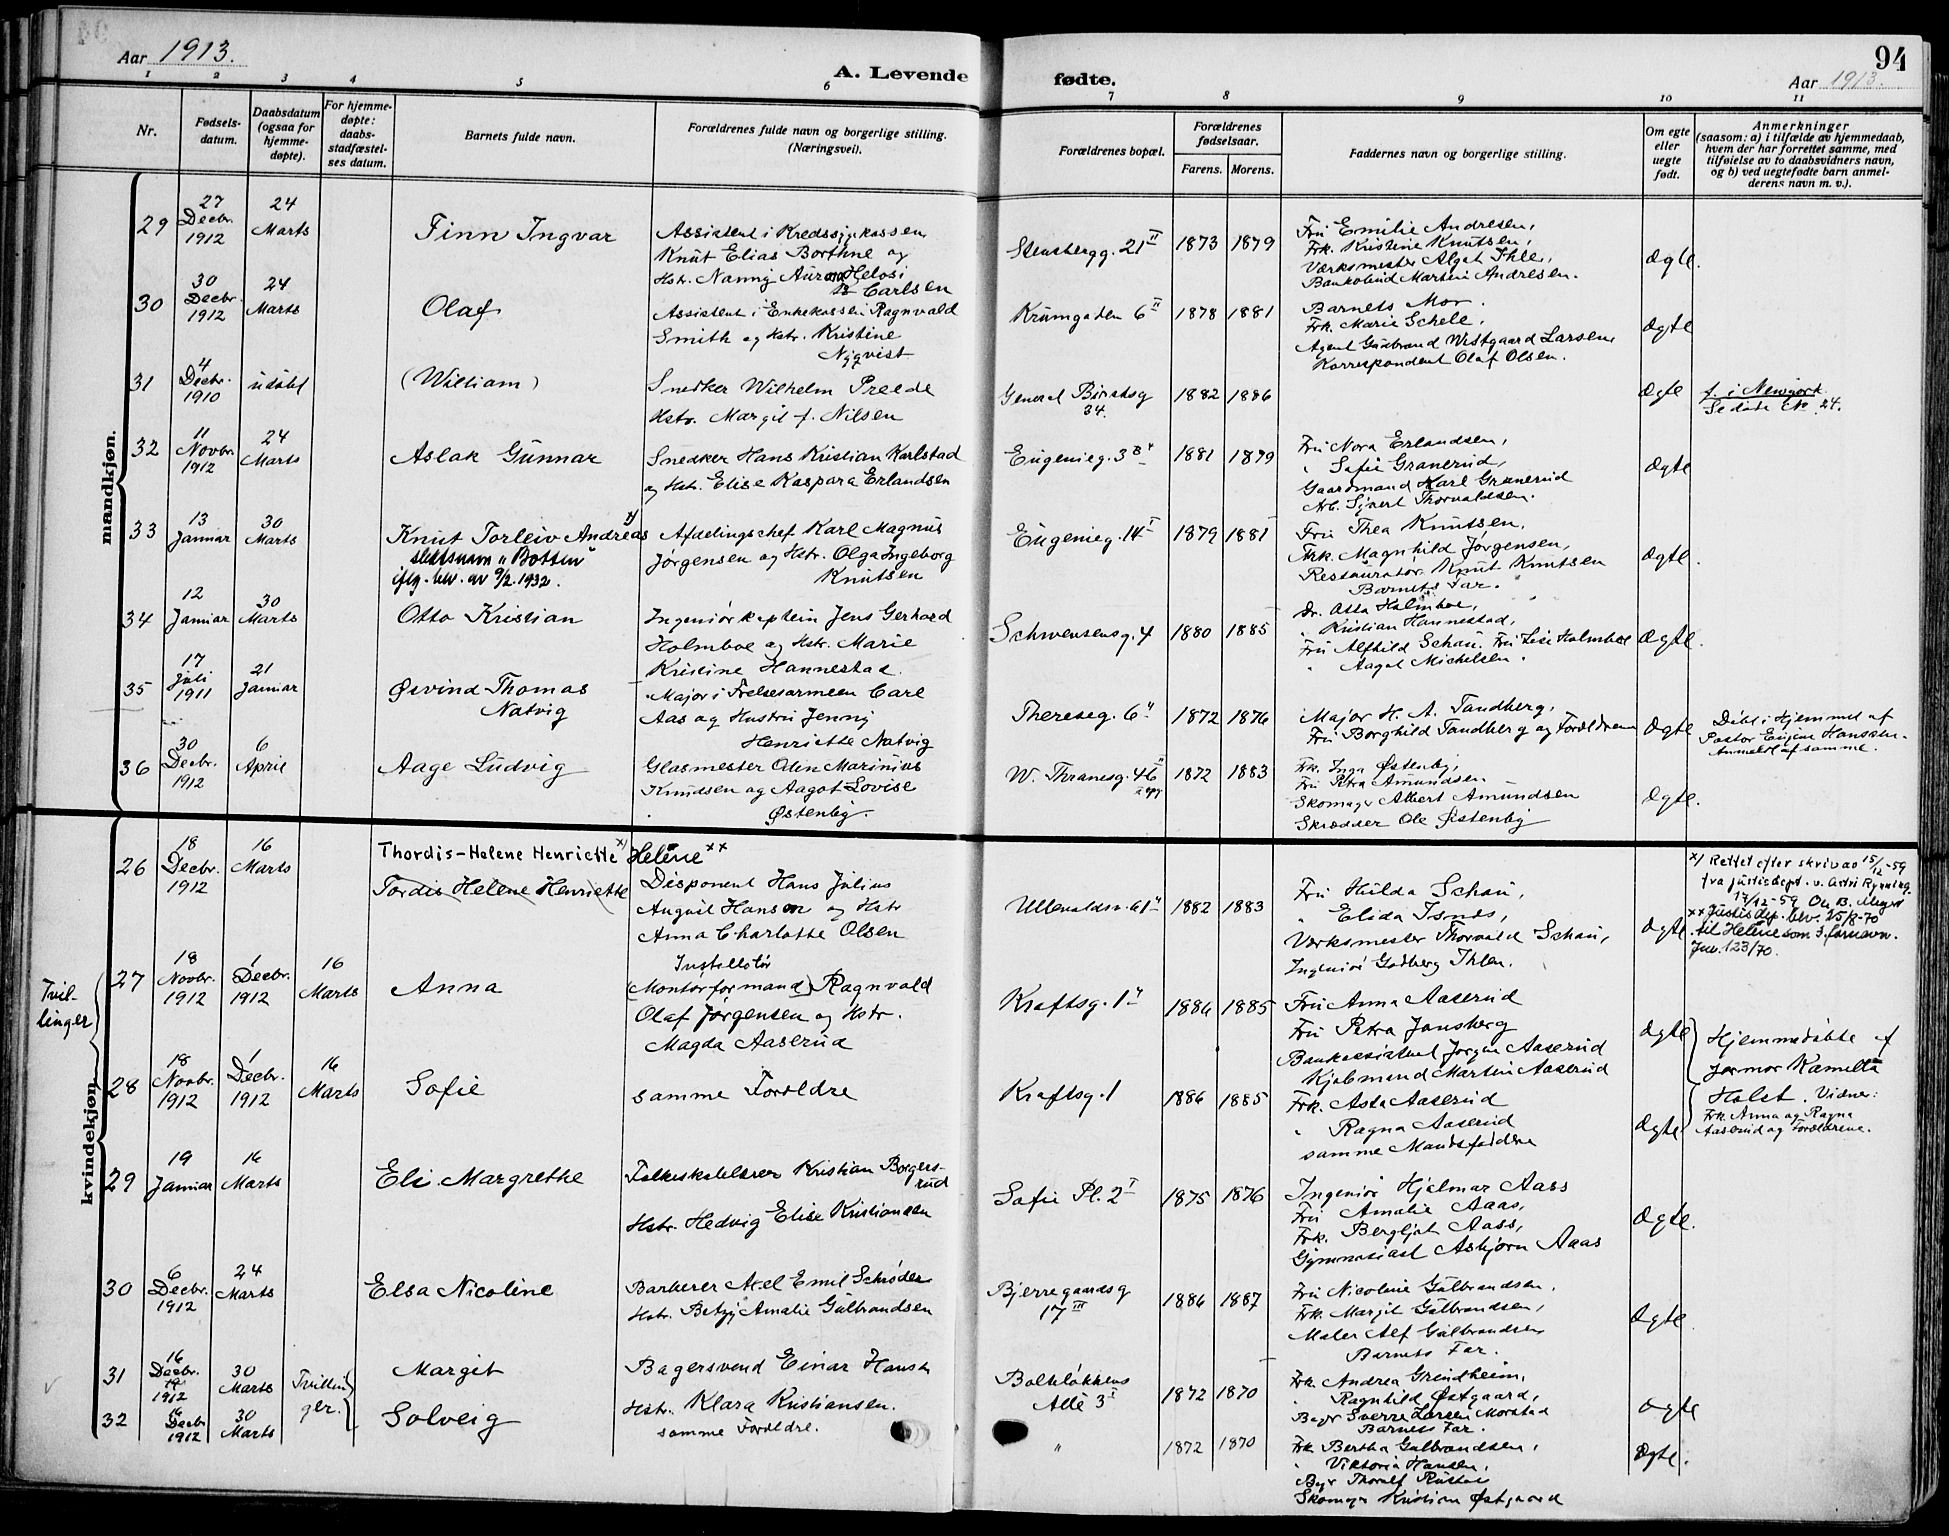 Aar 1913.
A. Levende
fødte.
94
Aar 1913.
1 2 3 4 5 6 7 8 9 10 11
Nr.
Fødsels-
datum.
Daabsdatum
(ogsaa for
hjemme-
døpte).
For hjemme-
døpte:
daabs-
stadfæstel-
ses datum.
Barnets fulde navn.
Forældrenes fulde navn og borgerlige stilling.
(Næringsvei).
Forældrenes bopæl.
Forældrenes
fødselsaar.
Farens. Morens.
Faddernes navn og borgerlige stilling.
Om egte
eller
uegte
født.
Anmerkninger
(saasom: a) i tilfælde av hjemmedaab,
hvem der har forrettet samme, med
tilføielse av to daabsvidners navn,
og b) ved uegtefødte barn anmel-
derens navn m. v.).
mandkjøn.
29
27
Decbr.
1912
24
Marts
Finn Ingvar
Assistent i Kredssygekassen
Knut Elias Borthne og
Hstr. Nanny Aurora Helosi
Carlsen
Stensbergg. 21 II
1873 1879
Fru Emilie Andresen,
Frk. Kristine Knutsen,
Værksmester Algot Ihle,
Bankobud Martin Andresen.
Ægte.
30
30
Decbr.
1912
24
Marts
Olaf
Assistent i Enkekassen Ragnvald
Smith og Hstr. Kristine
Nyqvist
Krumgaden 6 II
1878 1881
Barnets Mor.
Frk. Marie Schele,
Agent Gudbrand Westgaard Larsen,
Korrespondent Olaf Olsen.
Ægte
31
4
Decbr.
1910
udøbt
(William)
Snedker Wilhelm Preede
Hstr. Margit f. Nilsen
General Birchsg
34.
1882 1886
Ægte
f. i Newyork
Se dåbs 24.
32
11
Novbr.
1912
24
Marts
Aslak Gunnar
Snedker Hans Kristian Karlstad
og Hstr. Elise Kaspara Erlandsen
Eugenieg. 3B
1881 1879
Fru Nora Erlandsen,
" Sofie Granerud,
Gaardmand Karl Granerud
Arb. Sjvert Thorvaldsen.
Ægte
33
13
Januar
30
Marts
Knut Torleiv Andreas x)
slektsnavn "Botten"
iflg. bev. av 9/2. 1932.
Afdelingschef Karl Magnus
Jørgensen og Hstr. Olga Ingeborg
Knutsen
Eugenieg. 14 I
1879 1881
Fru Thea Knutsen,
Frk. Magnhild Jørgensen,
Restauratør Knut Knutsen
Barnets Far.
Ægte.
34
12
Januar
30
Marts
Otto Kristian
Ingeniørkaptein Jens Gerhard
Holmboe og Hstr. Marie
Kristine Hannestad.
Schwensensg. 4
1880 1885
Dr. Asta Holmboe,
" Kristian Hannestad,
Fru Alfhild Schau. Fru Lise Holmboe
" Aagot Michelsen.
Ægte.
35
17
Juli
1911
21
Januar
Øsvind Thomas
Natvig
Major i Frelsesarmeen Carl
Aas og Hustru Jenny
Henriette Natvig
Thereseg. 6 II
1872 1876
Major H. A. Tandberg,
Fru Borghild Tandberg og Forældrene
Ægte
Døbt i Hjemmet af
Pastor Eugen Hanssen.
Anmeldt af samme.
36
30
Decbr.
1912
6
April
Aage Ludvig
Glasmester Odin Marinius
Knudsen og Aagot Lovise
Østenby.
W. Thranesg. 46 II
1872 1883
Frk. Inga Østenby,
Fru Petra Amundsen
Skomager Albert Amundsen
Skrædder Ole Østenby
Ægte.
kvindekjøn.
26
18
Decbr.
1912
16
Marts
Thordis-Helene Henriette x) Helene xx
Tordis Helene Henriette
Disponent Hans Julius
August Hansen og Hstr
Anna Charlotte Olsen
Ullevaldsv. 61 II
1882 1883
Fru Hilda Schau,
" Elida Isnes,
Værksmester Thorvald Schau,
Ingeniør Godberg Ihlen.
Ægte
x) Rettet efter skriv av 15/12-59
fra justisdept. v. Astri Rynning.
17/12-59 On B. Meyer
xx Justisdep. bev. 25/8-70
til Helene som 3. fornavn.
Jnr. 123/70.
Tvil-
linger
27
18
Novbr.
1912
1
Decbr.
1912
16
Marts
Anna
Installatør
(Montørformand) Ragnvald
Olaf Jørgensen og Hstr.
Magda Aaserud
Kraftsg. 1 II
1886 1885
Fru Anna Aaserud
Fru Petra Jonsberg
Bankassistent Jørgen Aaserud
Kjøbmand Martin Aaserud
Ægte
Hjemmedøbte af
Jormor Kamelta
Holst. Vidner:
Frk. Anna og Ragna
Aaserud og Forældrene.
28
18
Novbr.
1912
1
Decbr.
1912
16
Marts
Sofie
samme Forældre
Kraftsg. 1
1886 1885
Frk. Asta Aaserud
" Ragna Aaserud
samme Mandsfaddere
Ægte
29
19
Januar
16
Marts
Eli Margrethe
Folkeskolelærer Kristian Borgers-
rud
Hstr. Hedvig Elise Kristiansen
Sofie Pl. 2 I
1875 1876
Ingeniør Hjalmar Aass
Fru Amalie Aaas,
Frk. Bergljot Aass,
Gymnasiast Asbjørn Aaas
Ægte.
30
6
Decbr.
1912
24
Marts
Elsa Nicoline
Barberer Axel Emil Schrøder
Hstr. Betzy Amalie Gulbrandsen
Bjerregaardsg
17 III
1886 1887
Fru Nicoline Gulbrandsen,
Frk. Margit Gulbrandsen,
Maler Alf Gulbrandsen
Barnets Far.
Ægte
31
16
Decbr.
1912
30
Marts
Tvillin
ger.
Margit
Bagersvend Einar Hansen
Hstr. Klara Kristiansen.
Bolteløkkens
Allé 3 I
1872 1870
Frk. Andrea Grindheim,
" Ragnhild Østgaard,
Bagr Sverre Larsen Morstad
Barnets Far.
Ægte
32
16
Decbr
1912
30
Marts
Solveig
samme Forældre.
"
1872 1870
Frk. Bertha Gulbrandsen,
" Viktoria Hansen,
Bagr Thoralf Rustad
Skomager Kristian Østgaard
Ægte.